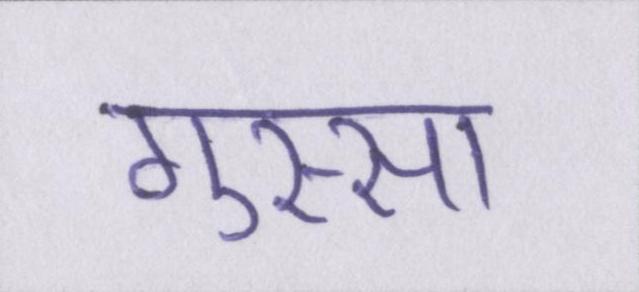 गुस्सा